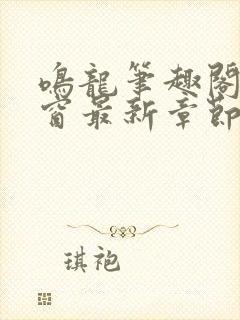 鳴龍筆趣閣
窗最新章節
琪袍